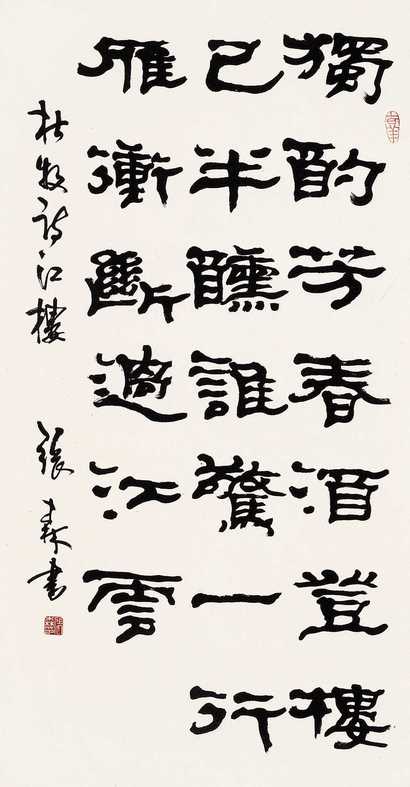 獨酌芳春酒豋樓
已半醺誰驚一行
雁衝斷過江雲
杜牧詩江樓 張森書